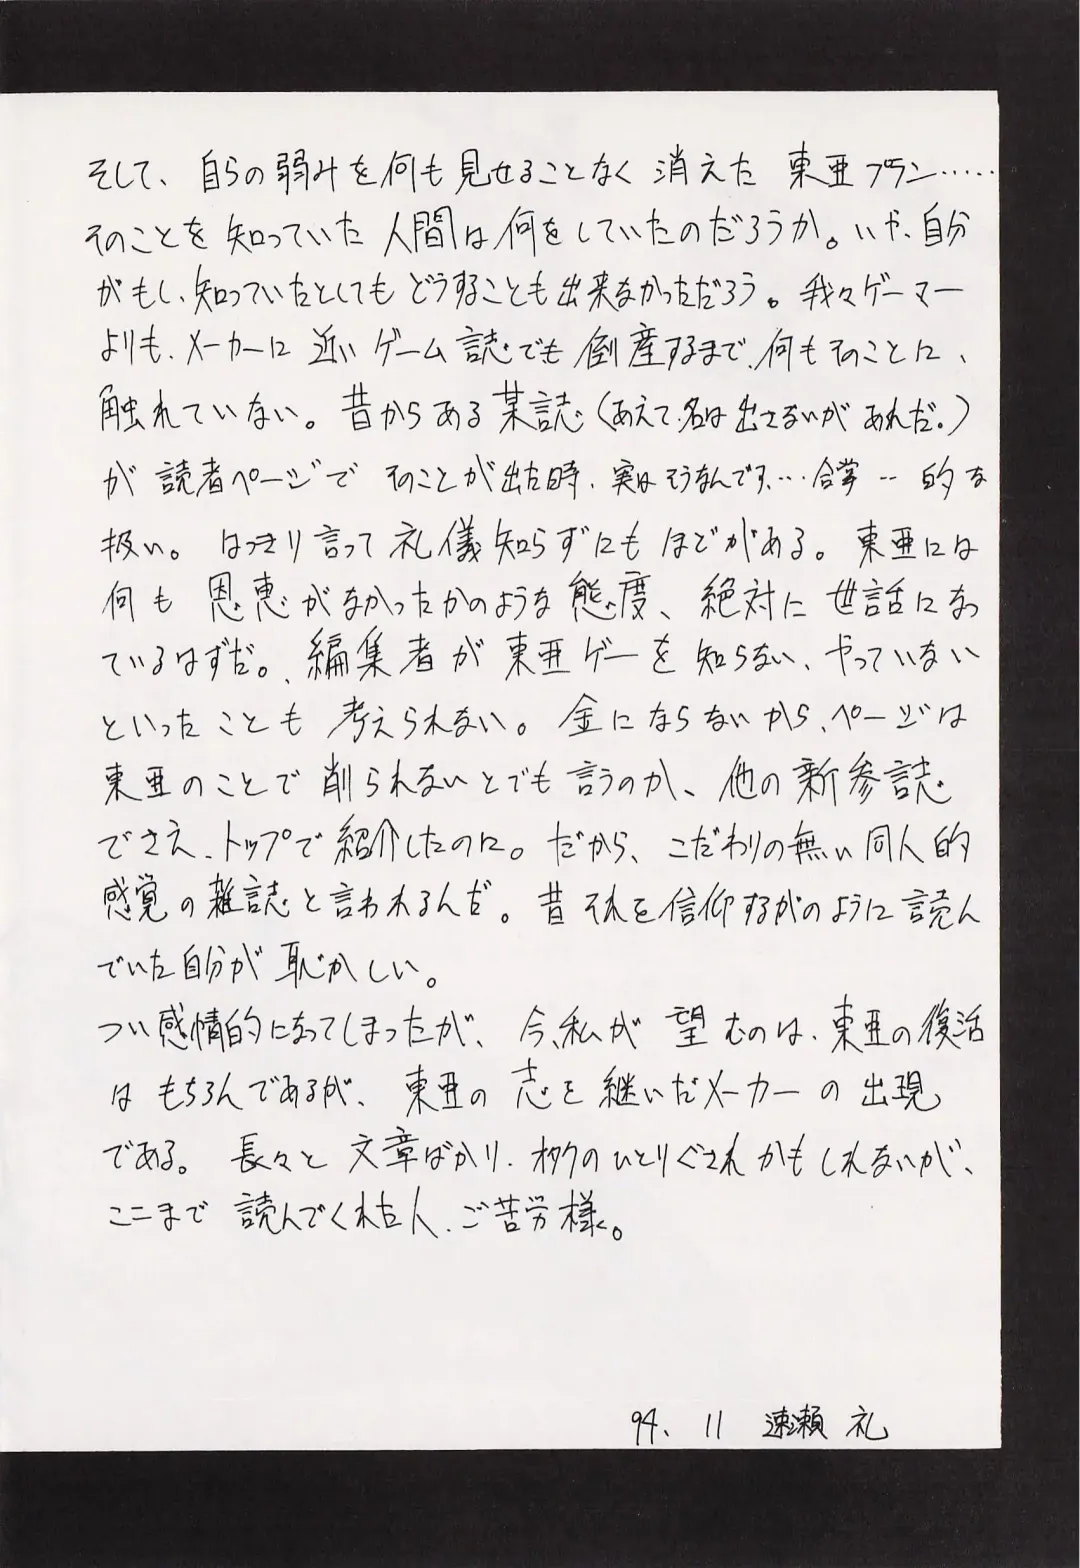 そして、自らの弱みを何も見せることなく消えた東亜プラン……
そのことを知っていた人間は何をしていたのだろうか。いや、自分
がもし、知っていたとしてもどうすることも出来なかっただろう。我々ゲーマー
よりも、メーカーに近いゲーム誌でも倒産するまで、何もそのことに、
触れていない。昔からある某誌(あえて名は出さないがあれだ。)
が読者ページでそのことが出た時、実はそうなんです、…合掌…的な
扱い。はっきり言って礼儀知らずにもほどがある。東亜には
何も恩恵がなかったかのような態度、絶対に世話になっ
ているはずだ。、編集者が東亜ゲーを知らない、やっていない
といったことも考えられない。金にならないから、ページは
東亜のことで削られないとでも言うのか、他の新参誌
でさえ、トップで紹介したのに。だから、こだわりの無い同人的
感覚の雑誌と言われるんだ。昔それを信仰するがのように読ん
でいた自分が恥かしい。
つい感情的になってしまったが、今、私が望むのは、東亜の復活
はもちろんであるが、東亜の志を継いだメーカーの出現
である。長々と文章ばかり、オタクのひとりぐされかもしれないが、
ここまで読んでくれた人、ご苦労様。
94、11 速瀬 礼